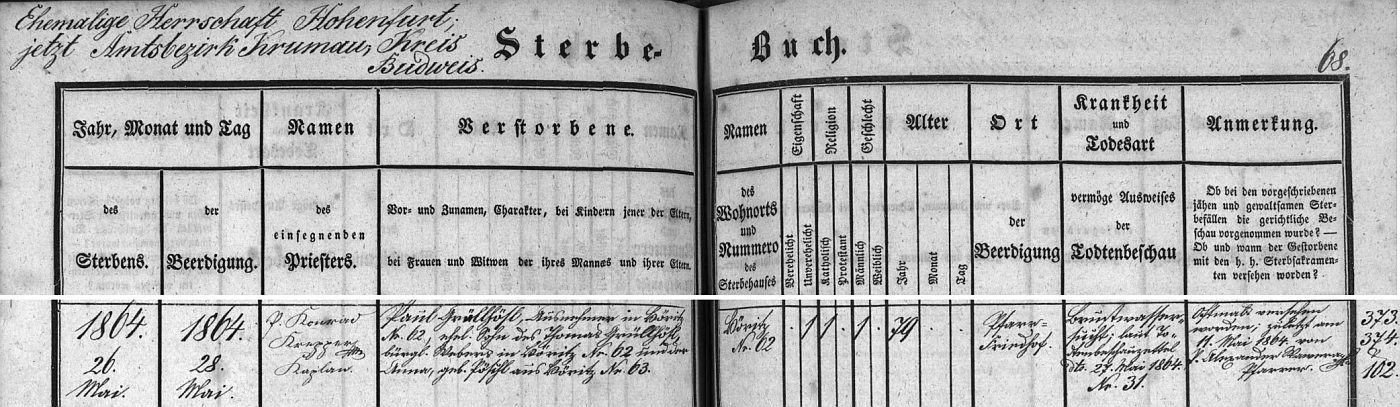 Ehemalige Herrschaft Hohenfurt,
jetzt Amtsbezirk Krumau, Kreis
Budweis.
Sterbe-Buch.
68.
Jahr, Monat und Tag
des Sterbens.
der Beerdigung.
Namen
des
einsegnenden
Priesters.
Verstorbene.
Vor- und Zunamen, Charakter, bei Kindern jener der Eltern,
bei Frauen und Witwen der ihres Mannes und ihrer Eltern.
Namen
des
Wohnorts
und
Nummero
des
Sterbehauses
Eigenschaft
Verehelicht
Unverehelicht
Religion
Katholisch
Protestant
Geschlecht
Männlich
Weiblich
Alter
Jahr
Monat
Tag
Ort
der
Beerdigung
Krankheit
und
Todesart
vermöge Ausweises
der
Todtenbeschau
Anmerkung.
Ob bei den vorgeschriebenen
jähen und gewaltsamen Ster-
befällen die gerichtliche Be-
schau vorgenommen wurde? —
Ob und wann der Gestorbene
mit den h. h. Sterbsakramen-
ten versehen worden?
1864.
26.
Mai.
1864.
28.
Mai.
P. Konrad
Kaplan.
Paul Gröllhösl, Ausnehmer in Böritz
Nr. 62, ehel. Sohn des Thomas Gröllhösl,
bürgl. Webers in Böritz Nr. 62 und der
Anna, geb. Pöschl aus Böritz Nr. 63.
Böritz
Nr. 62
. 1 1 . 1 . 79 . .
Pfarr-
Friedhof.
Brustwasser-
sucht; laut
dto. 27. Mai 1864.
Nr. 31.
Oftmals versehen
worden; zuletzt am
11. Mai 1864. von
P. Alexander
Pfarrer.
373.
374.
102.